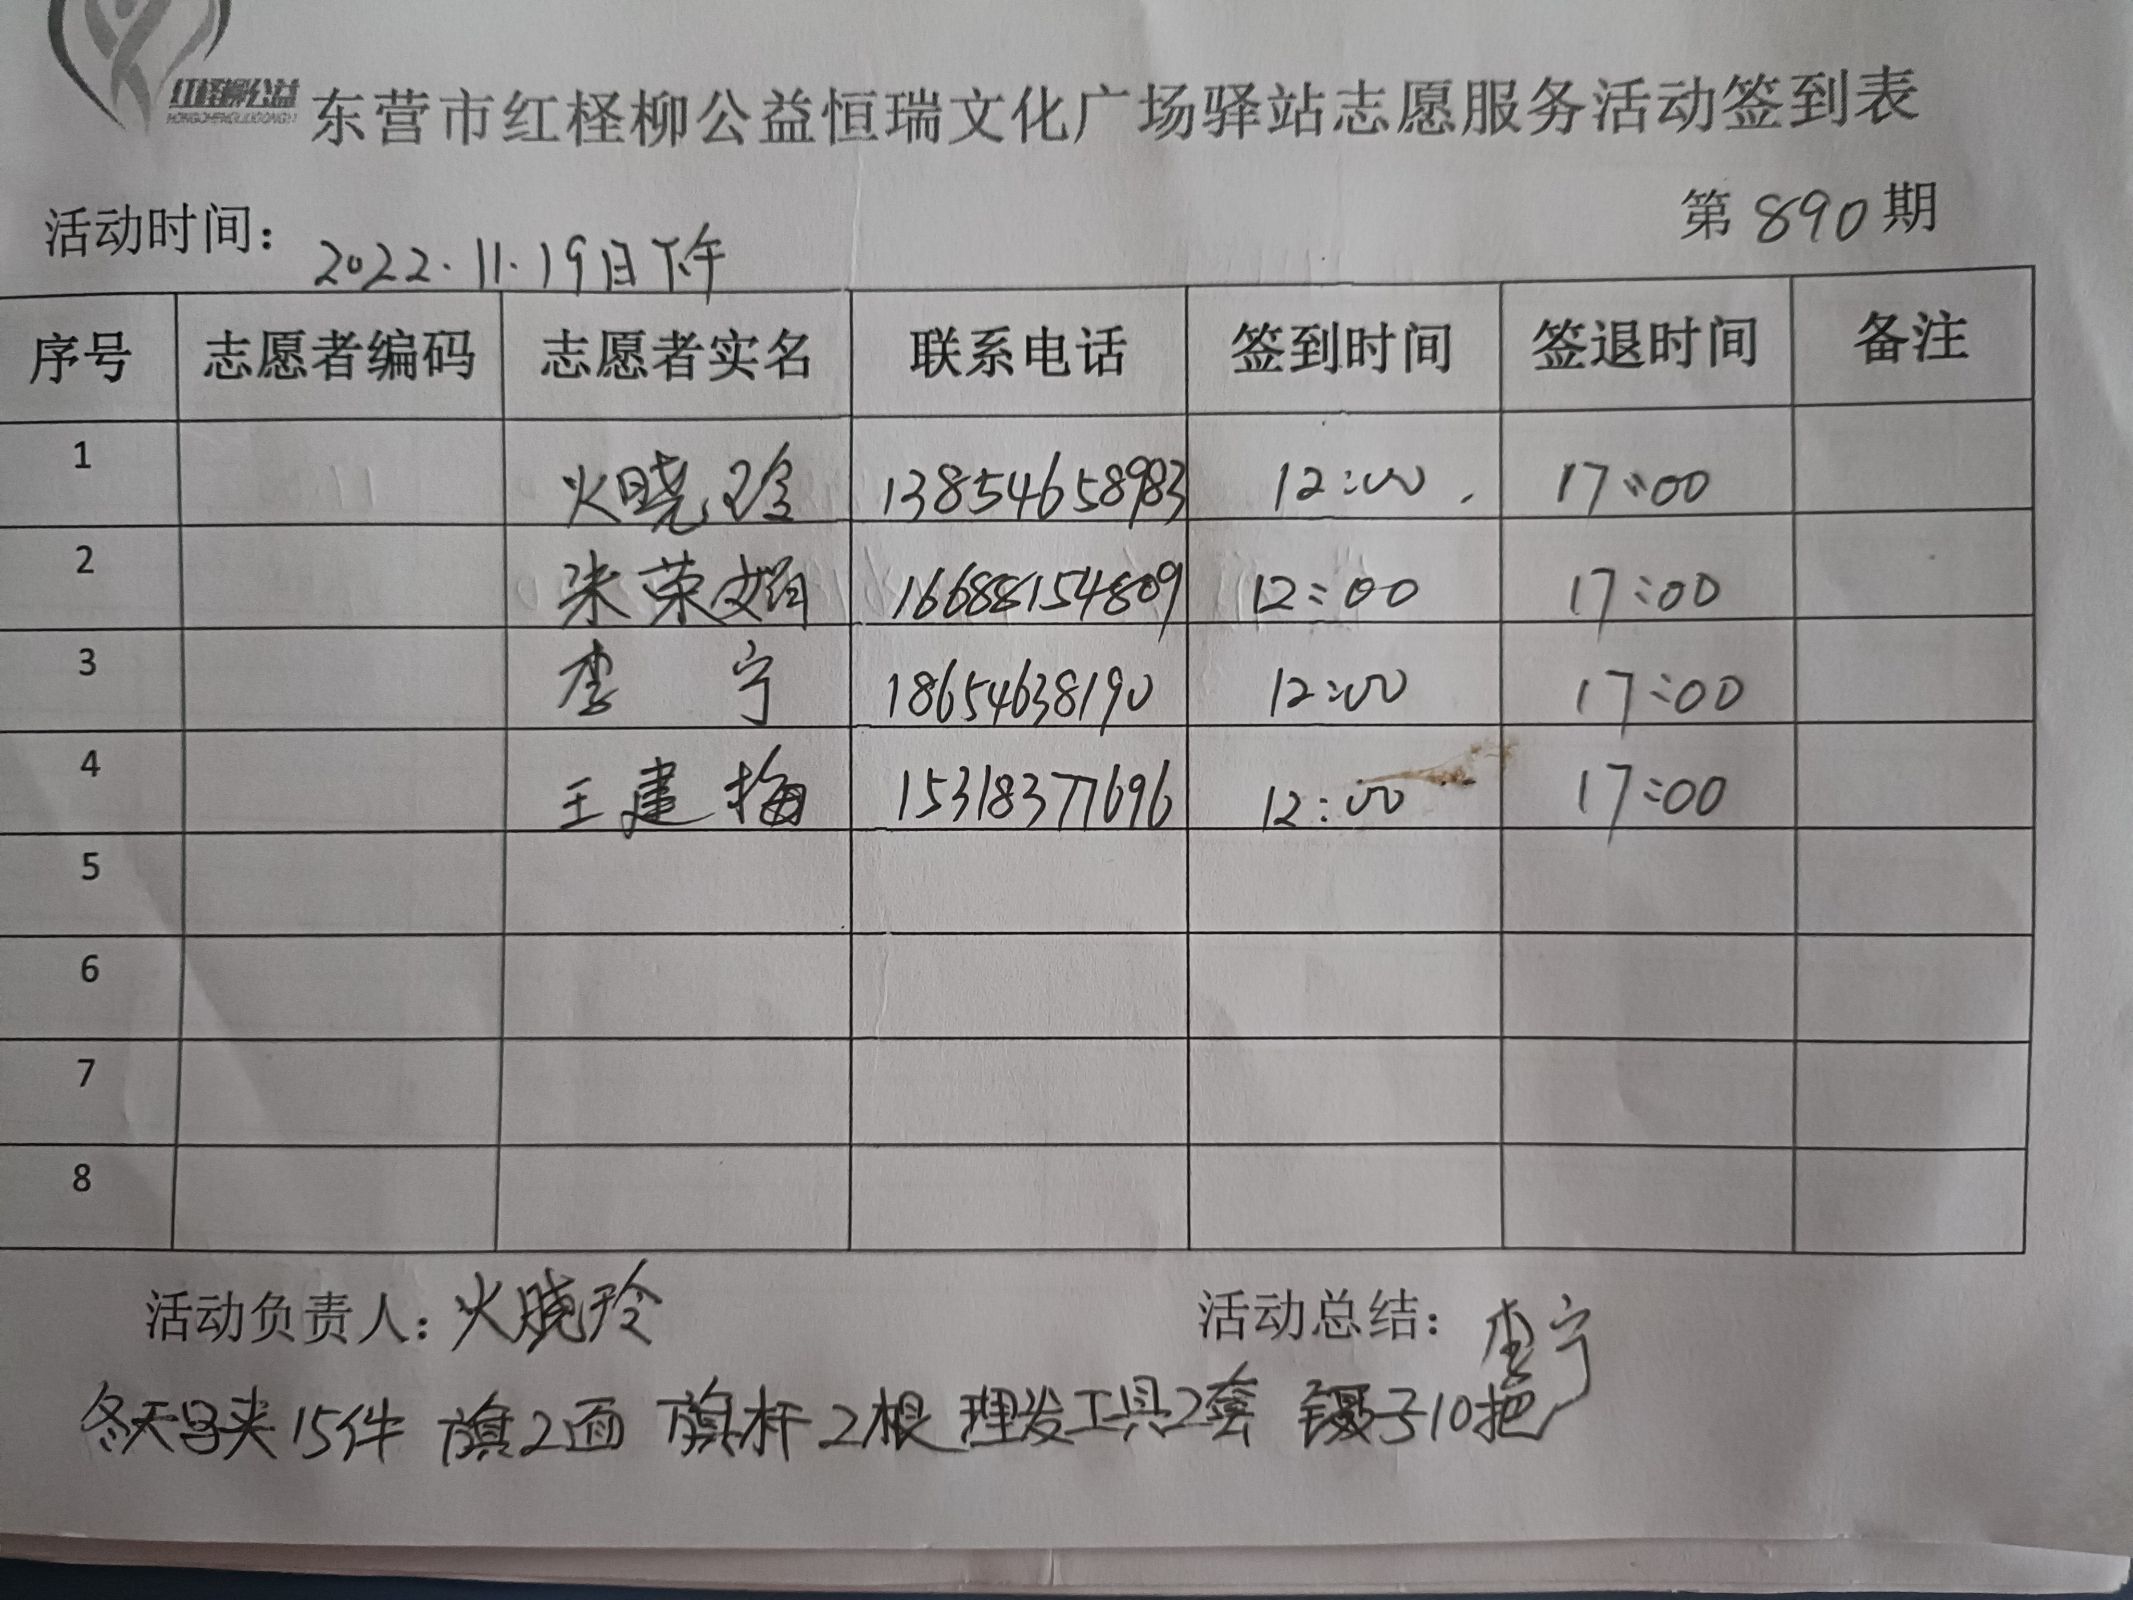 红柽柳公益
东营市红柽柳公益恒瑞文化广场驿站志愿服务活动签到表
活动时间：2022.11.19日下午 第890期
序号 志愿者编码 志愿者实名 联系电话 签到时间 签退时间 备注
1 火晓玲 13854658983 12:00 17:00
2 荣 16688154809 12:00 17:00
3 李宁 18654638190 12:00 17:00
4 王建梅 15318377696 12:00 17:00
5
6
7
8
活动负责人：火晓玲 活动总结：李宁
冬天马夹15件 旗2面 旗杆2根 理发工具2套 镊子10把